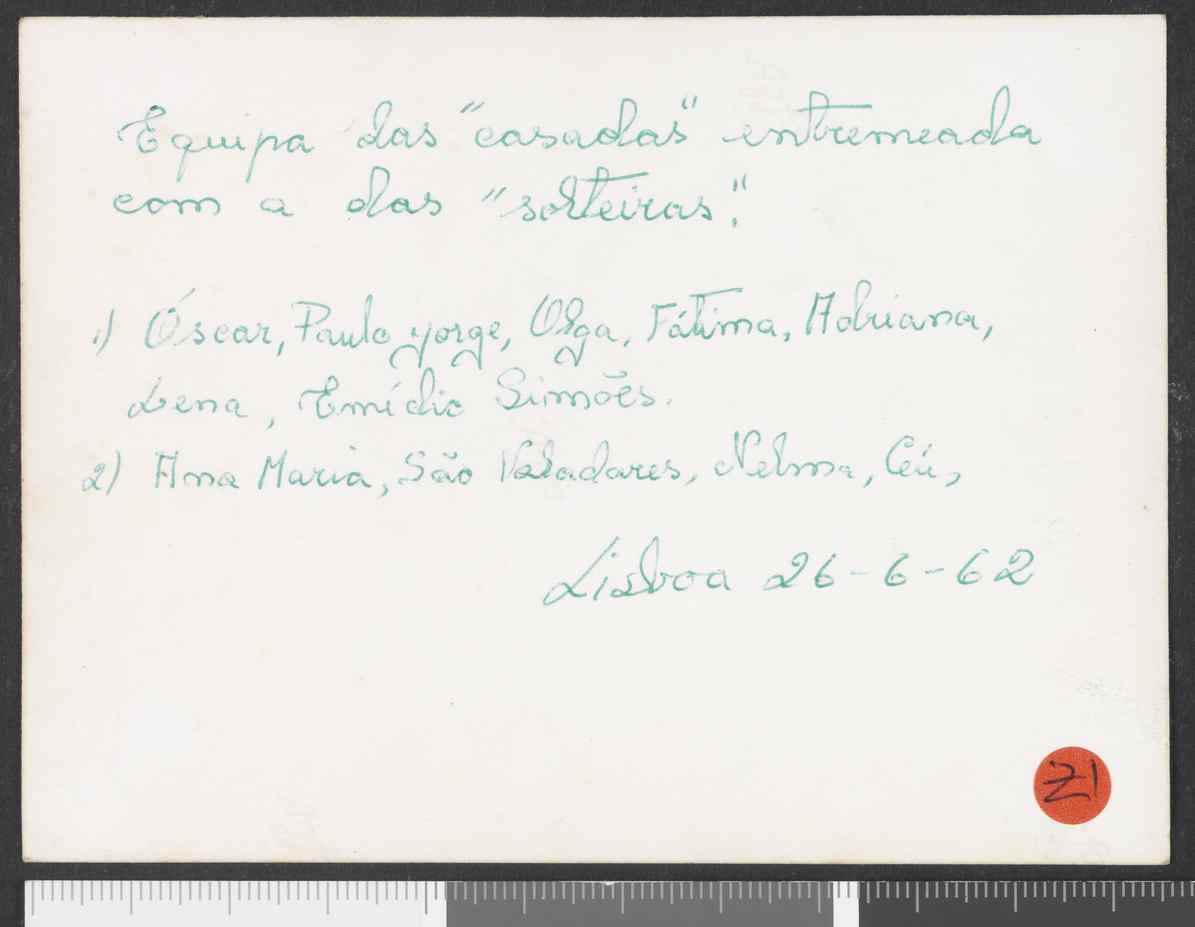 Equipa das "casadas" entremeada
com a das "solteiras".
1) Óscar, Paulo Jorge, Olga, Fátima, Adriana,
Lena, Emídio Simões.
2) Ana Maria, São Valadares, Nelma, Céu,
Lisboa 26-6-62
Z1